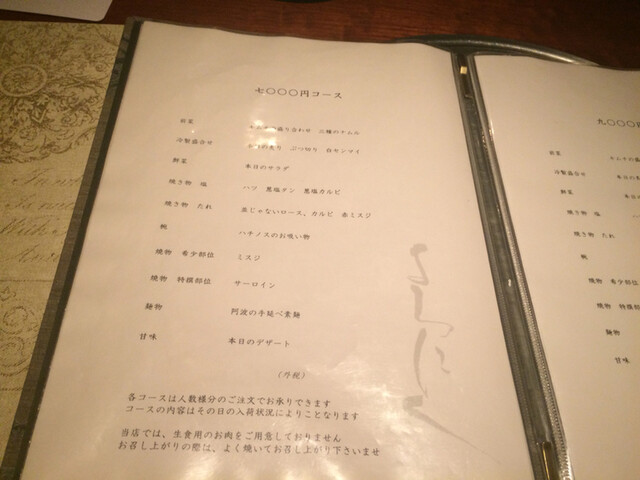 七〇〇〇円コース
前菜 キムチの盛り合わせ 三種のナムル
冷製盛合せ ぶつ切り 白センマイ
鮮菜 本日のサラダ
焼き物 塩 ハツ 黒塩タン 黒塩カルビ
焼き物 たれ 並じゃないロース、カルビ 赤ミスジ
椀 ハチノスのお吸い物
焼物 希少部位 ミスジ
焼物 特撰部位 サーロイン
麺物 阿波の手延べ素麺
甘味 本日のデザート
(外税)
各コースは人数様分のご注文でお承りできます
コースの内容はその日の入荷状況によりことなります
当店では、生食用のお肉をご用意しておりません
お召し上がりの際は、よく焼いてお召し上がり下さいませ
よろにく
九〇〇〇円
前菜 キムチの盛
冷製盛合せ 本日の
鮮菜 本日の
焼き物 塩
焼き物 たれ
椀
焼物 希少部位
焼物 特撰部位
麺物
甘味